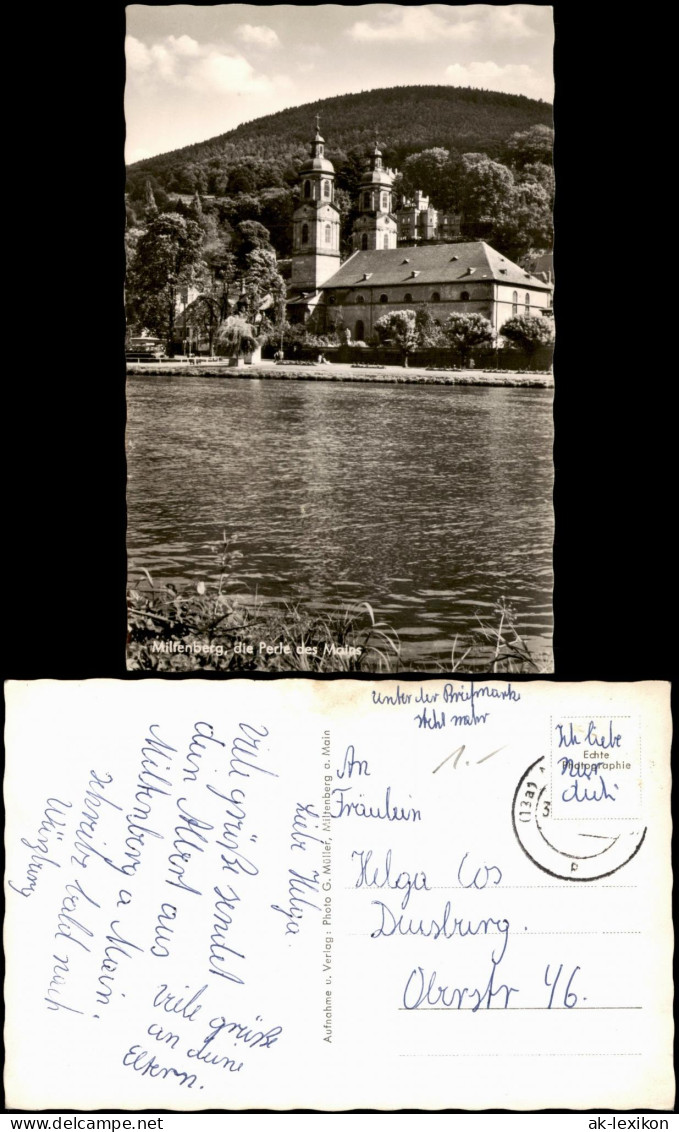 Miltenberg, die Perle des Mains
unter der Briefmarke
steht mehr
Ich liebe
nur
dich
Echte
Photographie
(13a)
b
1.-
An
Fräulein
Helga Cos
Duisburg.
Oberstr 46.
Aufnahme u. Verlag: Photo G. Müller, Miltenberg a. Main
Liebe Helga.
Viele grüße sendet
dein Albert aus
Miltenberg a Main.
schreibe bald nach
Würzburg
viele grüße
an deine
Eltern.
© ak-lexikon
www.ak-ansichtskarten.de